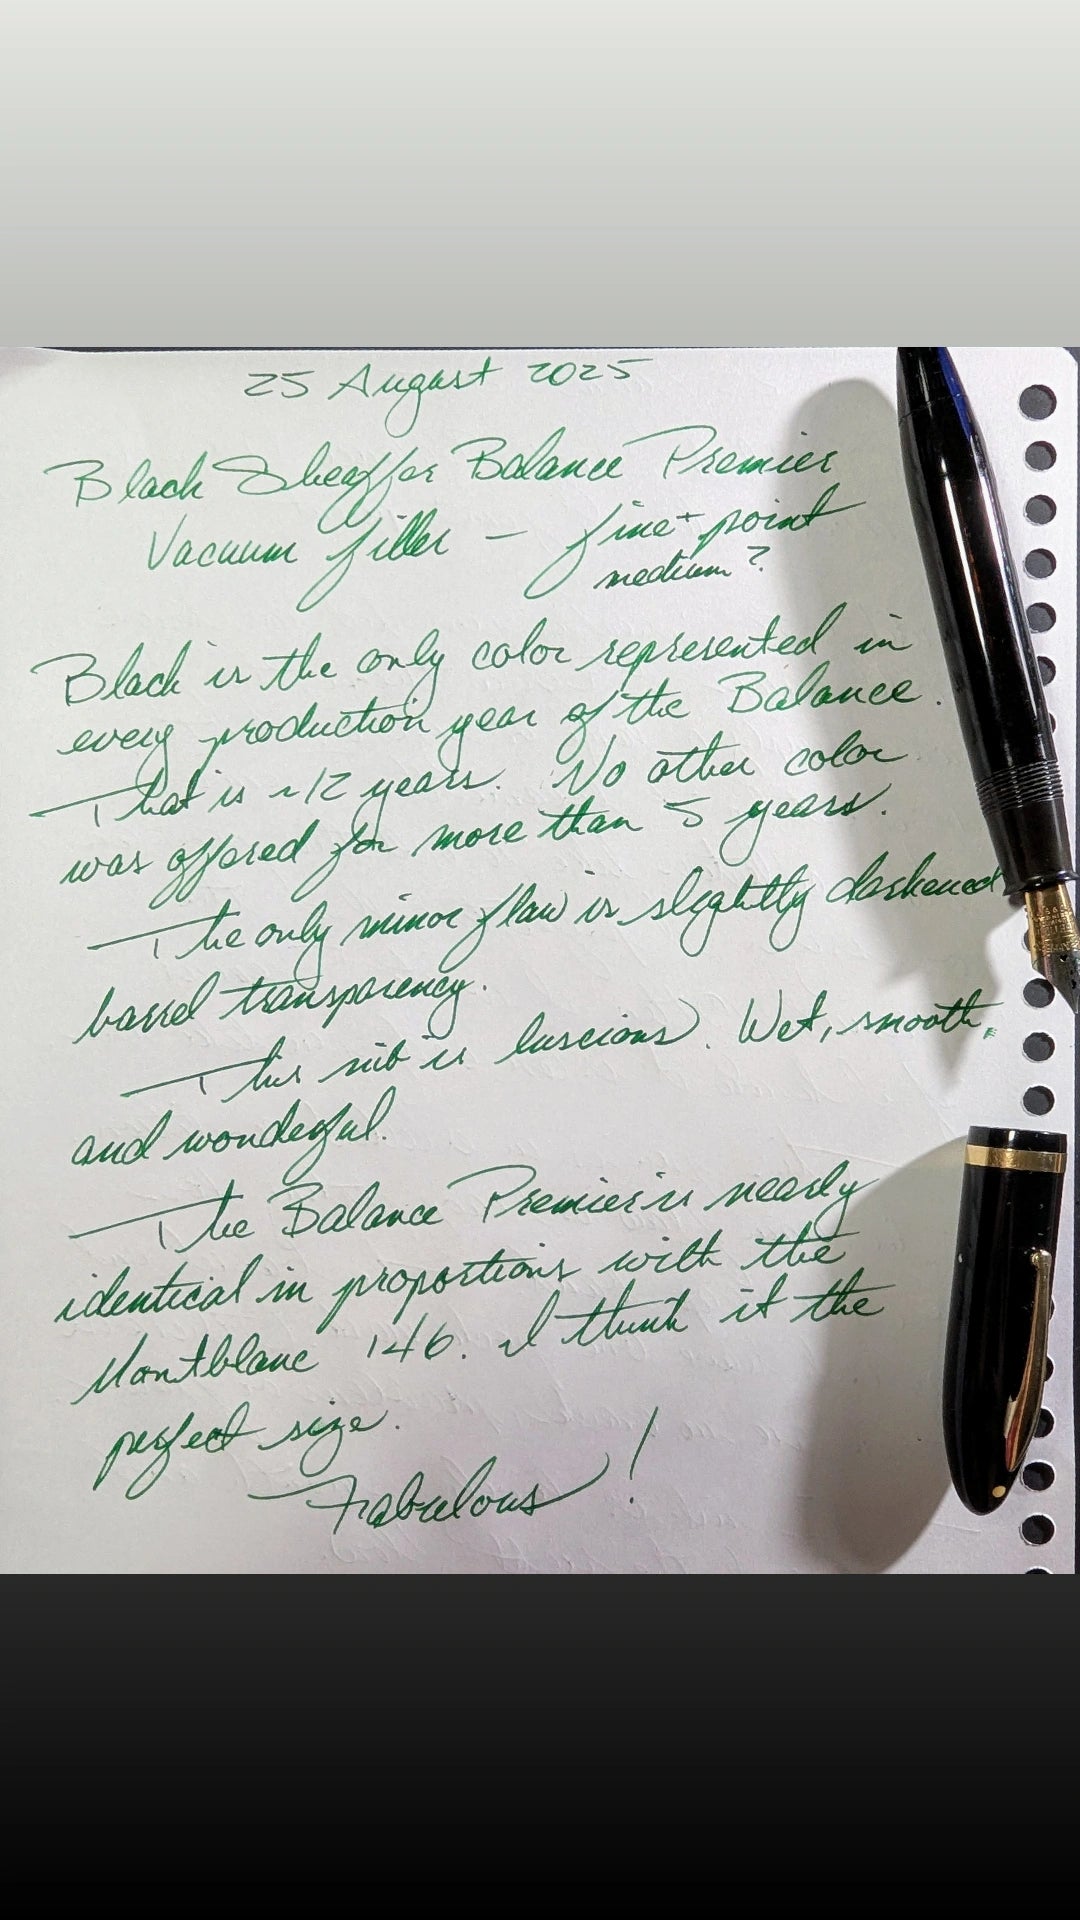 25 August 2025
Black Sheaffer Balance Premier
Vacuum filler – fine+ point
medium?
Black is the only color represented in
every production year of the Balance.
That is ~12 years. No other color
was offered for more than 5 years.
The only minor flaw is slightly darkened
barrel transparency.
This nib is luscious. Wet, smooth,
and wonderful.
The Balance Premier is nearly
identical in proportions with the
Montblanc 146. I think it the
perfect size.
Fabulous!